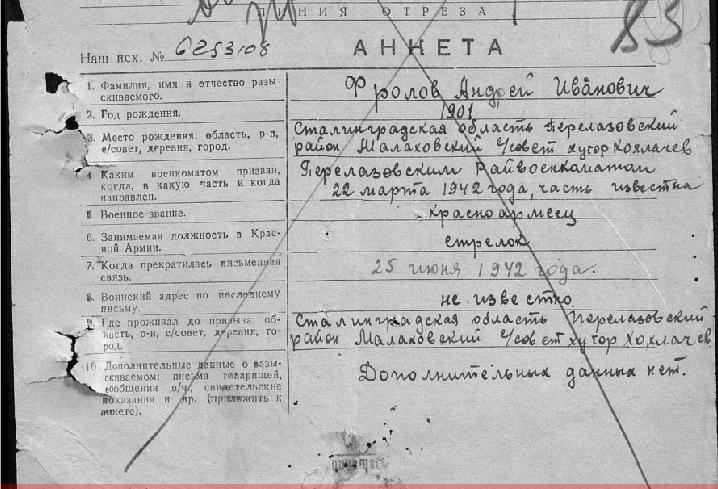 ЛИНИЯ ОТРЕЗА
83
Наш исх. № 6253-08
АНКЕТА
1. Фамилия, имя и отчество разы-
скиваемого.
Фролов Андрей Иванович
2. Год рождения.
1901
3. Место рождения: область, р-н,
с/совет, деревня, город.
Сталинградская область Перелазовский
район Малаховский с/совет хутор Хохлачев
4. Каким военкоматом призван,
когда, в какую часть и когда
направлен.
Перелазовским Райвоенкоматом
22 марта 1942 года, часть известна
5. Военное звание.
Красноармеец
6. Занимаемая должность в Крас-
ной Армии.
стрелок
7. Когда прекратилась письменная
связь.
25 июня 1942 года.
8. Воинский адрес по последнему
письму.
не известно
9. Где проживал до призыва: об-
ласть, р-н, с/совет, деревня, го-
род.
Сталинградская область Перелазовский
район Малаховский с/совет хутор Хохлачев
10. Дополнительные данные о разы-
скиваемом: письма товарищей,
сообщения в/ч, свидетельские
показания и пр. (приложить к
анкете).
Дополнительных данных нет.